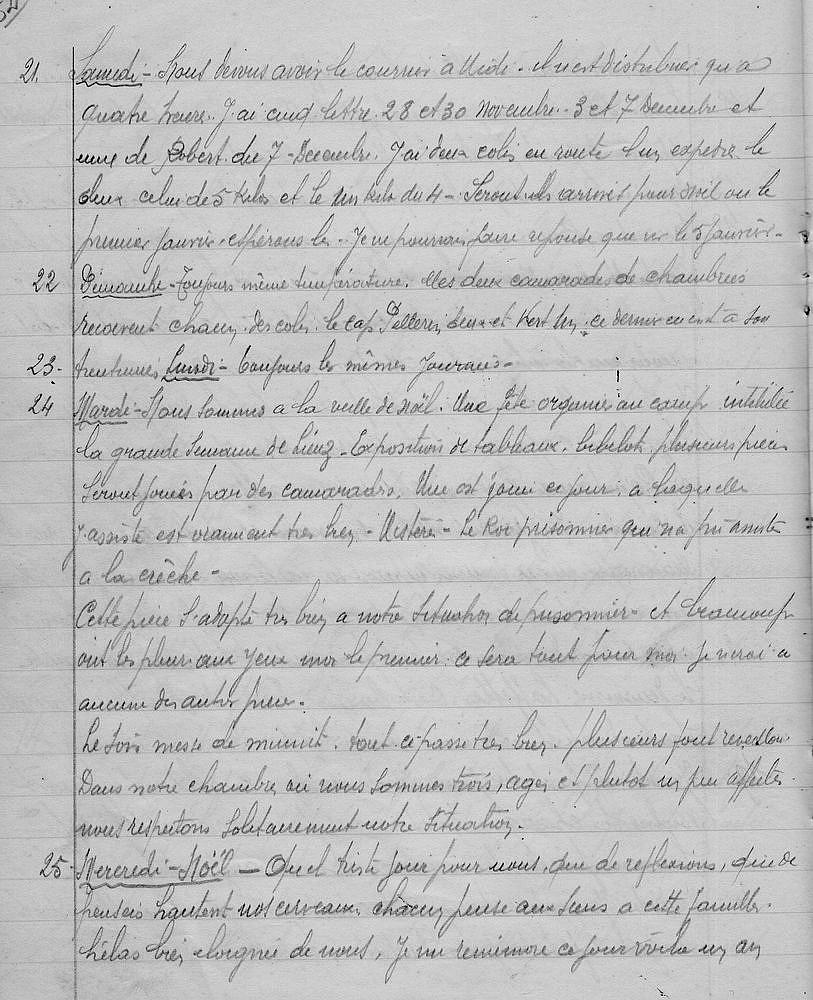 21. Samedi - Nous devons avoir le courrier à Midi. il n'est distribuer qu'a
quatre heures. J'ai cinq lettre. 28 et 30 Novembre. 3 et 7 Decembre et
une de Robert du 7 - Decembre. J'ai deux colis en route l'un expedié le
deux celui de 5 Kilos et le un kilo du 4 - Seront ils arrivés pour Noël ou le
premier janvier - espérons les - Je ne pourrais faire reponse que sur le 5 janvier -
22 Dimanche - Toujours même température. Mes deux camarades de chambrées
recoivent chacun des colis. le cap Pellerin deux et Kert un. ce dernier en est a son
23 - trentieme Lundi - toujours les mêmes journées -
24 Mardi - Nous sommes a la veille de Noël. Une fête organisé au camp intitulée
la grande Semaine de Lienz - Exposition de tableaux. bibelots plusieurs pièces
seront jouées par des camarades. Une est jouée ce jour, a laquelle
J'assiste est vraiment tres bien - - Le Roi prisonnier qui n'a pu assister
a la crêche -
Cette pièce s'adapte tres bien a notre situation de prisonnier - et beaucoup
ont les pleurs aux yeux moi le premier. ce sera tout pour moi. Je n'irai a
aucune des autres pieces.
Le soir messe de minuit. tout ce passe tres bien. plusieurs font reveillon.
Dans notre chambre où nous sommes trois, agés et plutot un peu affectés
nous respectons solitairement notre situation.
25 - Mercredi - Noël - Quel triste jour pour nous, que de reflexions, que de
pensées hantent nos cerveaux. chacun pense aux siens a cette famille.
hélas bien eloignée de nous. Je me remémore ce jour voila un an